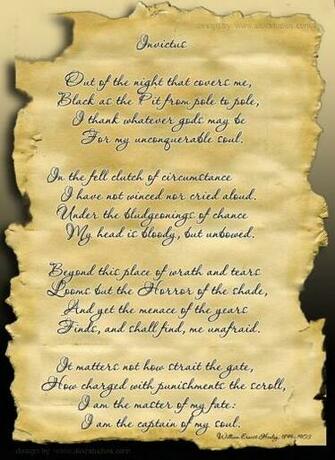 design by www.dioxstudios.com
Invictus
Out of the night that covers me,
Black as the Pit from pole to pole,
I thank whatever gods may be
For my unconquerable soul.
In the fell clutch of circumstance
I have not winced nor cried aloud.
Under the bludgeonings of chance
My head is bloody, but unbowed.
Beyond this place of wrath and tears
Looms but the Horror of the shade,
And yet the menace of the years
Finds, and shall find, me unafraid.
It matters not how strait the gate,
How charged with punishments the scroll,
I am the master of my fate:
I am the captain of my soul.
William Ernest Henley, 1849-1903
design by www.dioxstudios.com